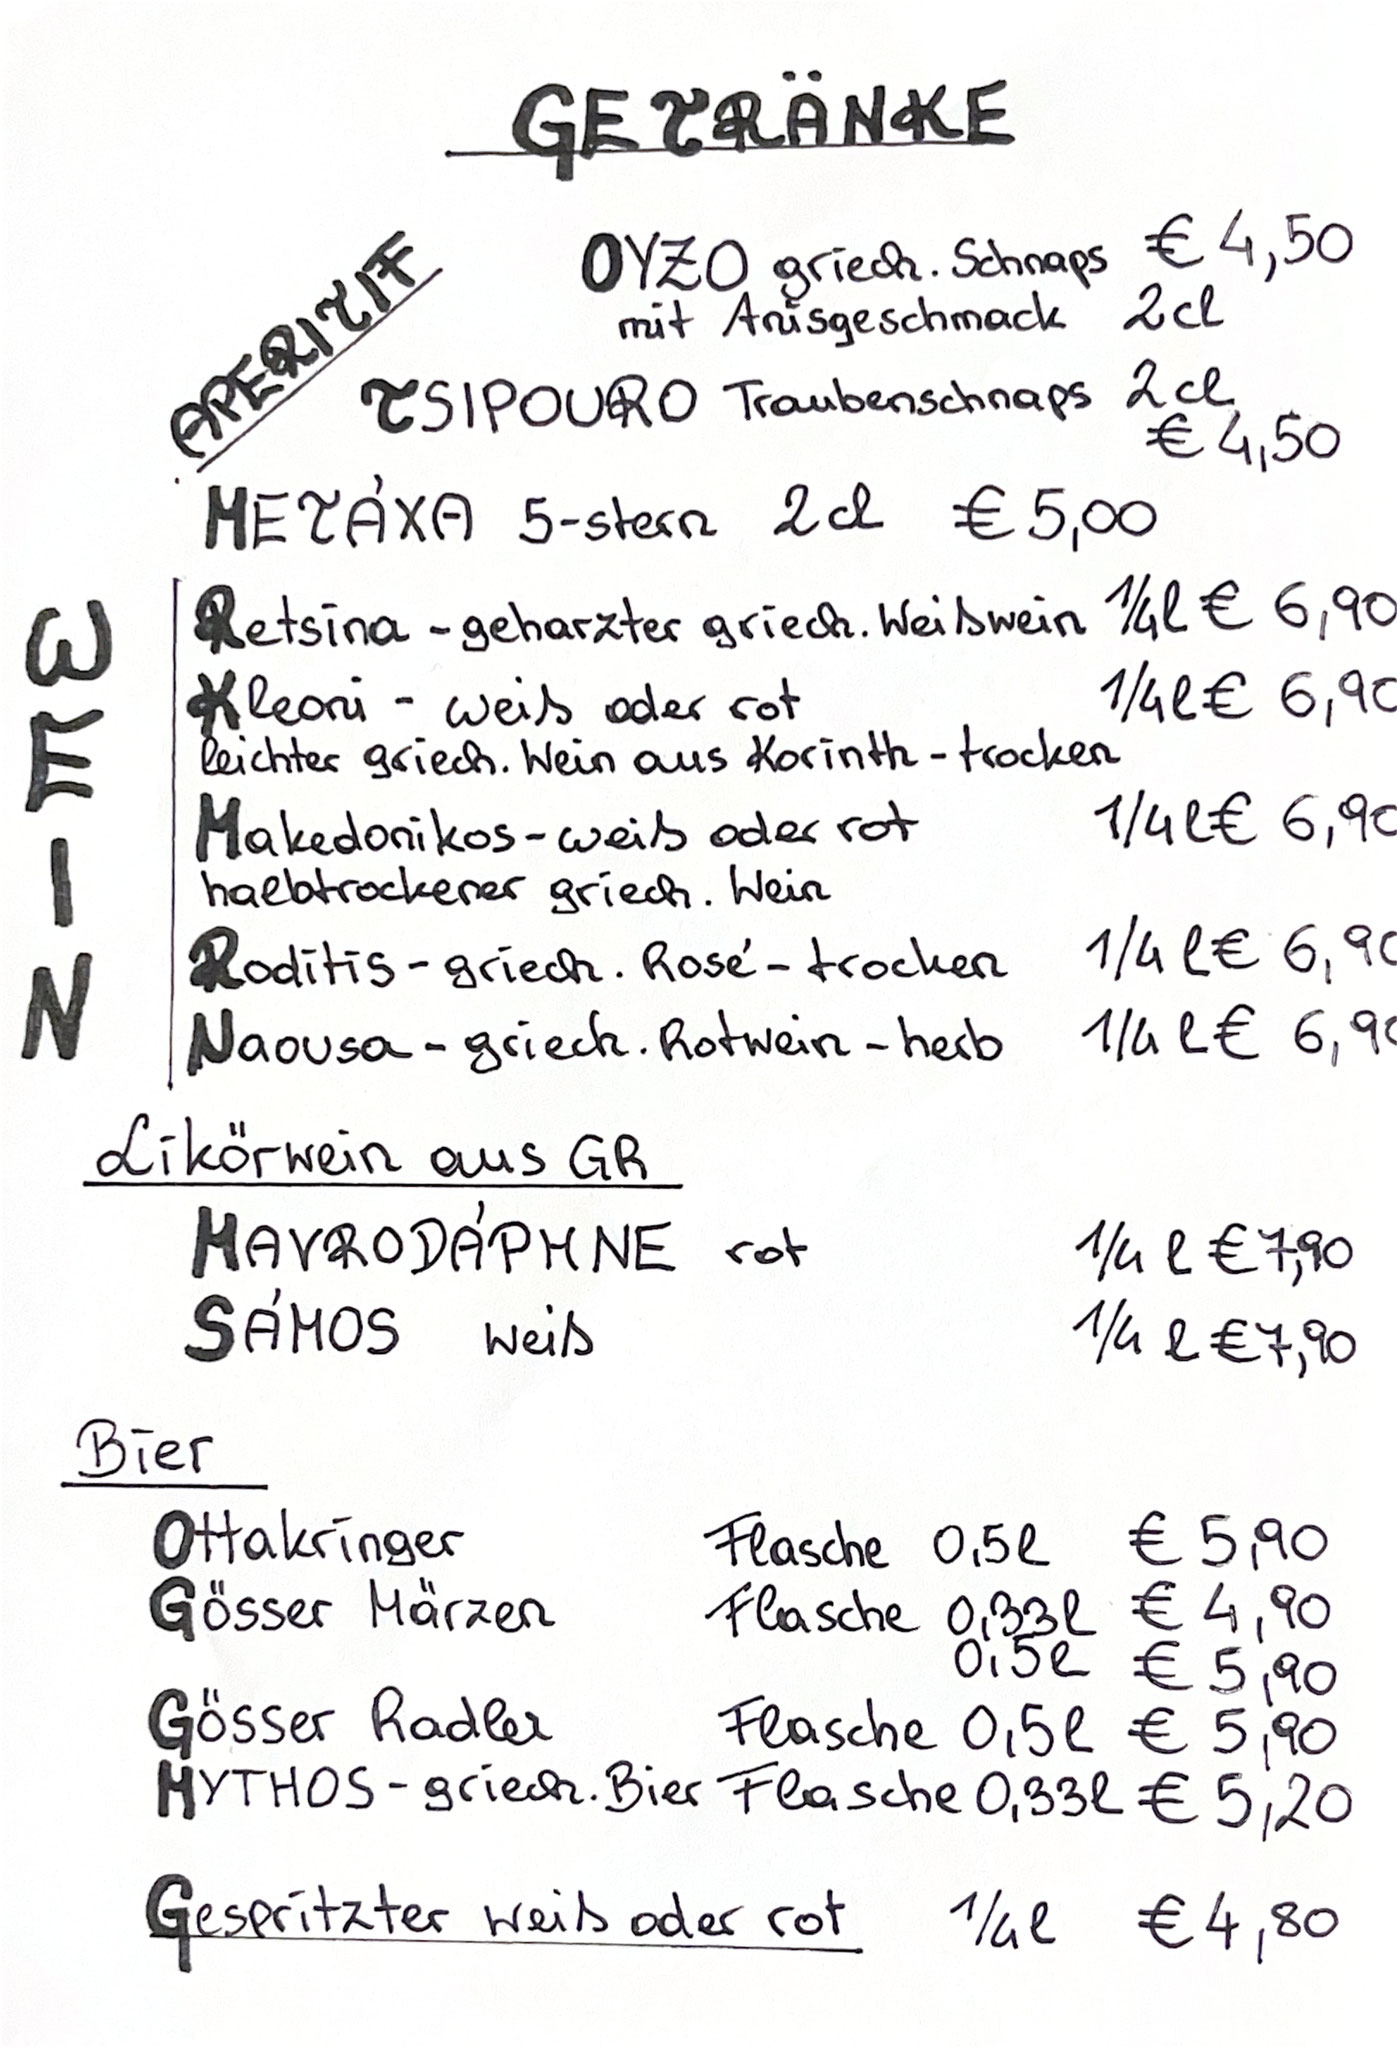 GETRÄNKE
APERITIF
OYZO griech. Schnaps € 4,50
mit Anisgeschmack 2cl
TSIPOURO Traubenschnaps 2cl
€ 4,50
METÁXA 5-stern 2cl € 5,00
WEIN
Retsina - geharzter griech. Weißwein 1/4l € 6,90
Kleoni - weiß oder rot 1/4l € 6,90
leichter griech. Wein aus Korinth - trocken
Makedonikos - weiß oder rot 1/4l € 6,90
halbtrockener griech. Wein
Roditis - griech. Rosé - trocken 1/4 l € 6,90
Naousa - griech. Rotwein - herb 1/4 l € 6,90
Likörwein aus GR
MAVRODÁPHNE rot 1/4 l € 7,90
SÁMOS weiß 1/4 l € 7,90
Bier
Ottakringer Flasche 0,5l € 5,90
Gösser Märzen Flasche 0,33l € 4,90
0,5l € 5,90
Gösser Radler Flasche 0,5l € 5,90
MYTHOS - griech. Bier Flasche 0,33l € 5,20
Gespritzter weiß oder rot 1/4l € 4,80